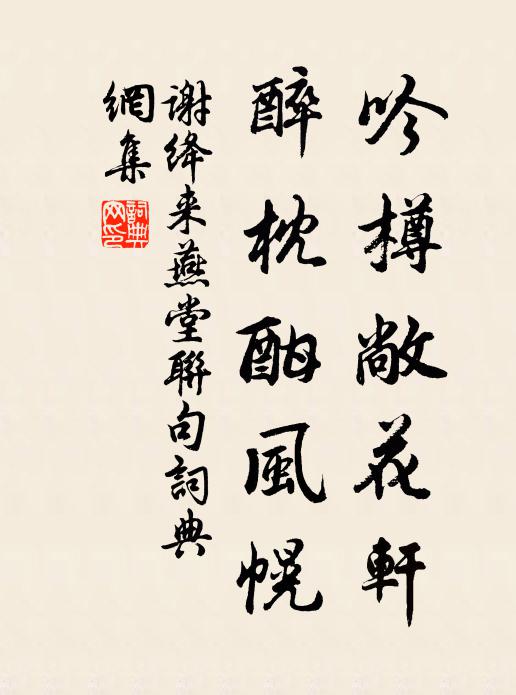 吟樽敞花軒
醉枕酣風幌
谢绛来燕堂聯句詞典
網集
詞典
网印